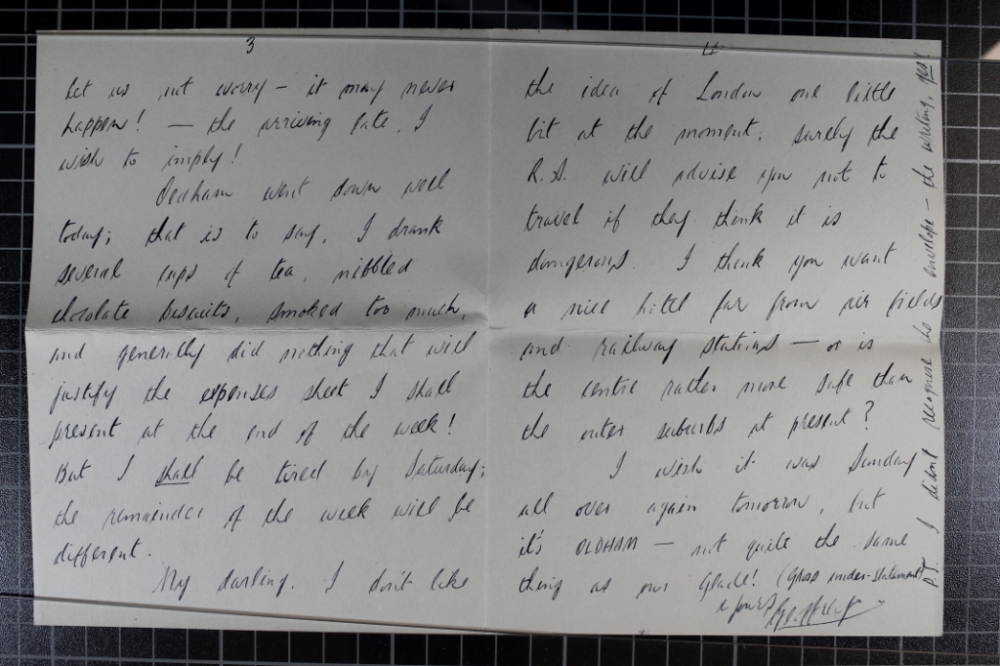 3
Let us not worry – it may never
happen! – the arriving late, I
wish to imply!
Oldham went down well
today; that is to say, I drank
several cups of tea, nibbled
chocolate biscuits, smoked too much,
and generally did nothing that will
justify the expenses sheet I shall
present at the end of the week!
But I shall be tired by Saturday;
the remainder of the week will be
different.
My darling, I don't like
4
the idea of London one little
bit at the moment; surely the
R.A. will advise you not to
travel if they think it is
dangerous. I think you want
a nice hotel far from air fields
and railway stations – or is
the centre rather more safe than
the outer suburbs at present?
I wish it was Sunday
all over again tomorrow, but
it's OLDHAM – not quite the same
thing as our Glade! (Gross under-statement)
yours Geoffrey
P.T. I didn't recognise the envelope – the writing. Yes!